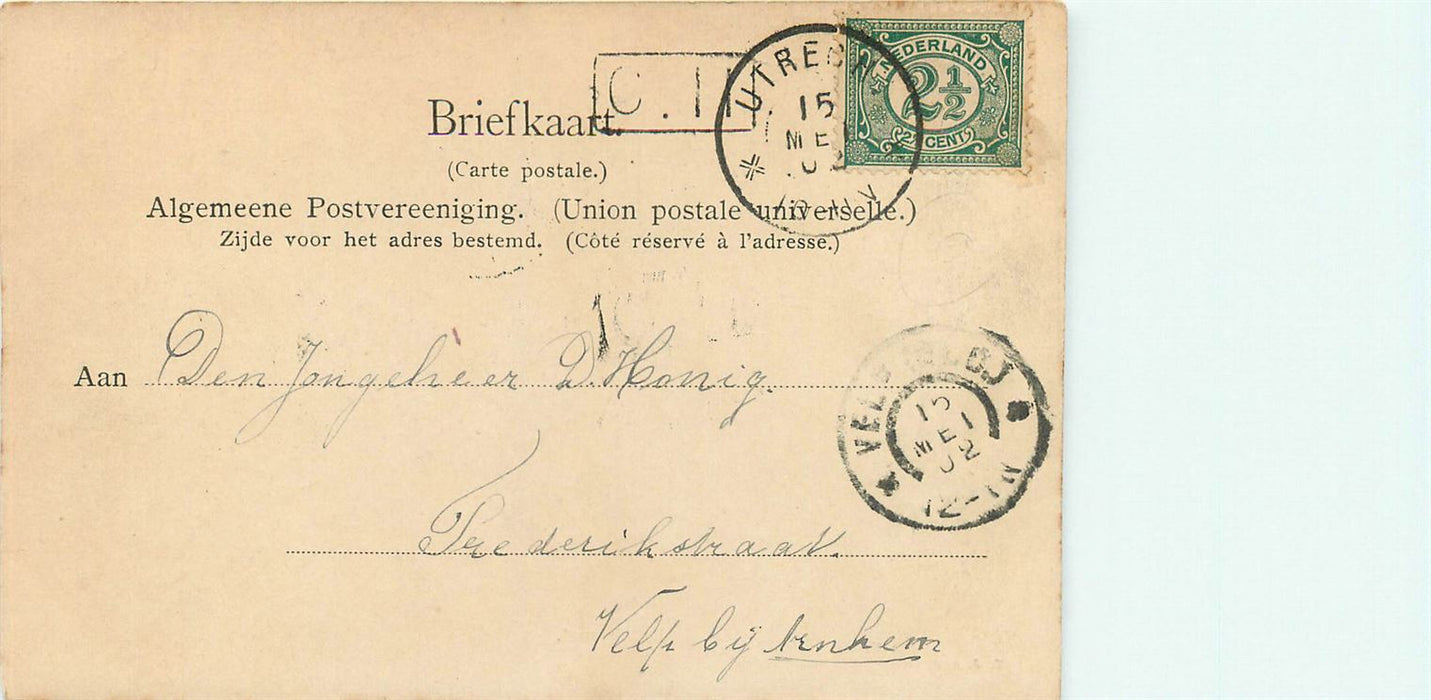 C.II
UTRECH
15
MEI
02
NEDERLAND
2 1/2
CENT
Briefkaart.
(Carte postale.)
Algemeene Postvereeniging. (Union postale universelle.)
Zijde voor het adres bestemd. (Côté réservé à l'adresse.)
Aan Den Jongeheer D. Honig.
15
MEI
02
12-1N
Frederikstraat.
Velp bij Arnhem